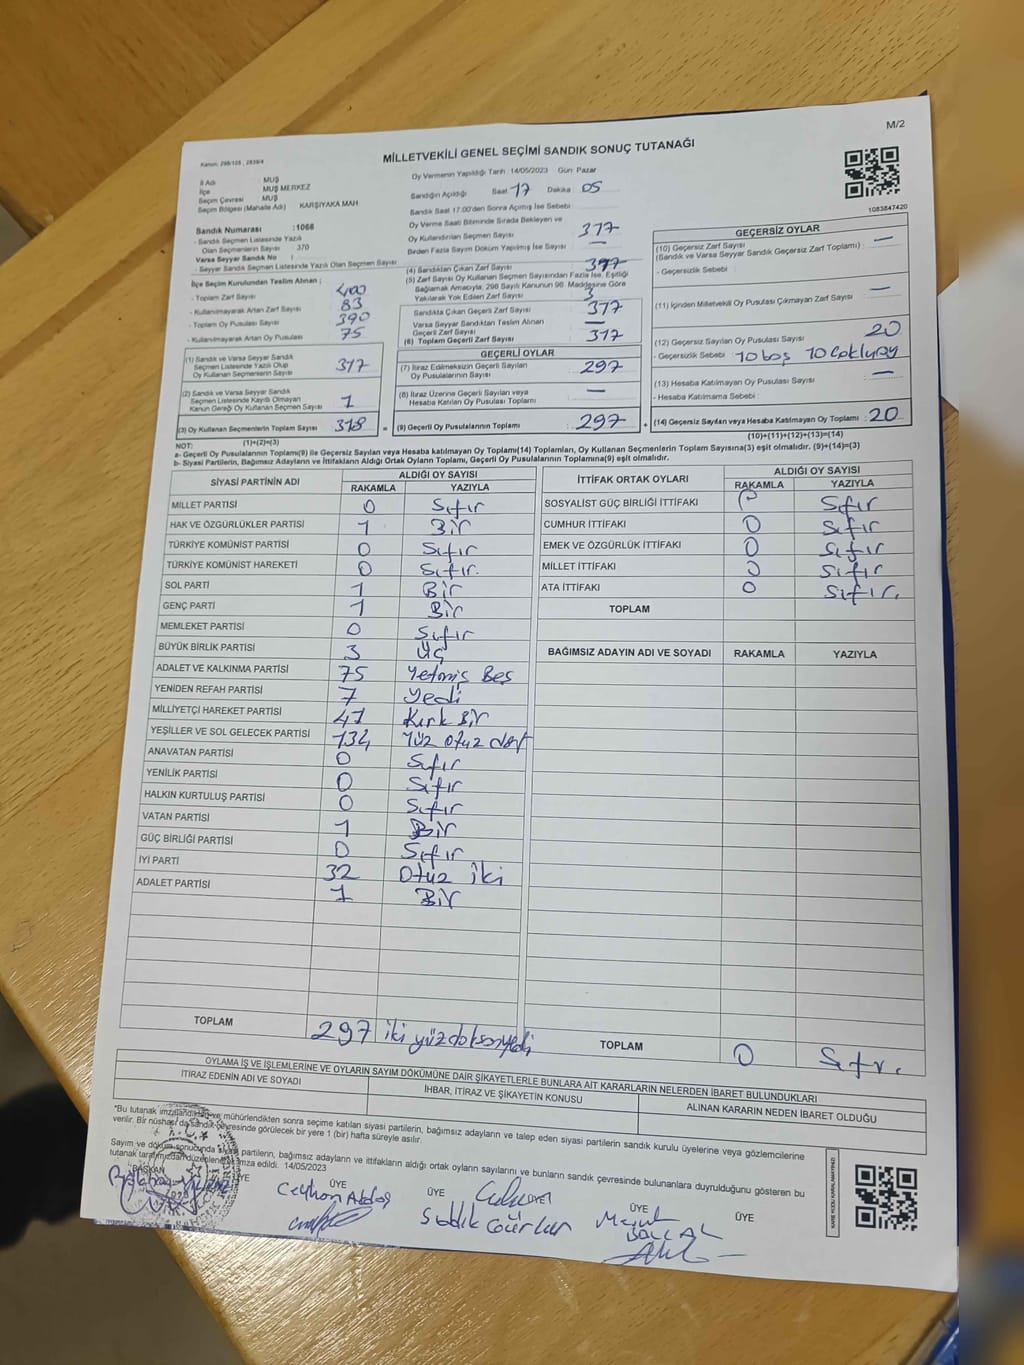 M/2
Kanun: 298/105 , 2839/4
MİLLETVEKİLİ GENEL SEÇİMİ SANDIK SONUÇ TUTANAĞI
İl Adı : MUŞ
İlçe : MUŞ MERKEZ
Seçim Çevresi : MUŞ
Seçim Bölgesi (Mahalle Adı) : KARŞIYAKA MAH
Sandık Numarası : 1066
- Sandık Seçmen Listesinde Yazılı
Olan Seçmenlerin Sayısı : 370
Varsa Seyyar Sandık No :
- Seyyar Sandık Seçmen Listesinde Yazılı Olan Seçmen Sayısı :
İlçe Seçim Kurulundan Teslim Alınan ;
- Toplam Zarf Sayısı : 400
- Kullanılmayarak Artan Zarf Sayısı : 83
- Toplam Oy Pusulası Sayısı : 390
- Kullanılmayarak Artan Oy Pusulası : 75
(1) Sandık ve Varsa Seyyar Sandık
Seçmen Listesinde Yazılı Olup
Oy Kullanan Seçmenlerin Sayısı : 317
(2) Sandık ve Varsa Seyyar Sandık
Seçmen Listesinde Kayıtlı Olmayan
Kanun Gereği Oy Kullanan Seçmen Sayısı : 1
(3) Oy Kullanan Seçmenlerin Toplam Sayısı : 318
(1)+(2)=(3)
Oy Vermenin Yapıldığı Tarih 14/05/2023 Gün Pazar
Sandığın Açıldığı Saat 17 Dakika 05
Sandık Saat 17.00'den Sonra Açılmış İse Sebebi :
Oy Verme Saati Bitiminde Sırada Bekleyen ve
Oy Kullandırılan Seçmen Sayısı : 317
Birden Fazla Sayım Döküm Yapılmış İse Sayısı : —
(4) Sandıktan Çıkan Zarf Sayısı :
(5) Zarf Sayısı Oy Kullanan Seçmen Sayısından Fazla İse, Eşitliği
Sağlamak Amacıyla, 298 Sayılı Kanunun 98. Maddesine Göre
Yakılarak Yok Edilen Zarf Sayısı : 3
Sandıkta Çıkan Geçerli Zarf Sayısı : 317
Varsa Seyyar Sandıktan Teslim Alınan
Geçerli Zarf Sayısı : —
(6) Toplam Geçerli Zarf Sayısı : 317
GEÇERLİ OYLAR
(7) İtiraz Edilmeksizin Geçerli Sayılan
Oy Pusulalarının Sayısı : 297
(8) İtiraz Üzerine Geçerli Sayılan veya
Hesaba Katılan Oy Pusulası Toplamı : —
= (9) Geçerli Oy Pusulalarının Toplamı : 297 +
1083847420
GEÇERSİZ OYLAR
(10) Geçersiz Zarf Sayısı : —
(Sandık ve Varsa Seyyar Sandık Geçersiz Zarf Toplamı) :
- Geçersizlik Sebebi :
(11) İçinden Milletvekili Oy Pusulası Çıkmayan Zarf Sayısı : —
(12) Geçersiz Sayılan Oy Pusulası Sayısı : 20
- Geçersizlik Sebebi : 10 boş 10 Çokluoy
(13) Hesaba Katılmayan Oy Pusulası Sayısı : —
- Hesaba Katılmama Sebebi :
(14) Geçersiz Sayılan veya Hesaba Katılmayan Oy Toplamı : 20
(10)+(11)+(12)+(13)=(14)
NOT:
a- Geçerli Oy Pusulalarının Toplamı(9) ile Geçersiz Sayılan veya Hesaba katılmayan Oy Toplamı(14) Toplamları, Oy Kullanan Seçmenlerin Toplam Sayısına(3) eşit olmalıdır. (9)+(14)=(3)
b- Siyasi Partilerin, Bağımsız Adayların ve İttifakların Aldığı Ortak Oyların Toplamı, Geçerli Oy Pusulalarının Toplamına(9) eşit olmalıdır.
SİYASİ PARTİNİN ADI ALDIĞI OY SAYISI
RAKAMLA YAZIYLA
MİLLET PARTİSİ 0 Sıfır
HAK VE ÖZGÜRLÜKLER PARTİSİ 1 Bir
TÜRKİYE KOMÜNİST PARTİSİ 0 Sıfır
TÜRKİYE KOMÜNİST HAREKETİ 0 Sıfır.
SOL PARTİ 1 Bir
GENÇ PARTİ 1 Bir
MEMLEKET PARTİSİ 0 Sıfır
BÜYÜK BİRLİK PARTİSİ 3 Üç
ADALET VE KALKINMA PARTİSİ 75 Yetmiş Beş
YENİDEN REFAH PARTİSİ 7 Yedi
MİLLİYETÇİ HAREKET PARTİSİ 41 Kırk Bir
YEŞİLLER VE SOL GELECEK PARTİSİ 134 Yüz otuz dört
ANAVATAN PARTİSİ 0 Sıfır
YENİLİK PARTİSİ 0 Sıfır
HALKIN KURTULUŞ PARTİSİ 0 Sıfır
VATAN PARTİSİ 1 Bir
GÜÇ BİRLİĞİ PARTİSİ 0 Sıfır
İYİ PARTİ 32 Otuz iki
ADALET PARTİSİ 1 Bir
TOPLAM 297 iki yüz doksan yedi
İTTİFAK ORTAK OYLARI ALDIĞI OY SAYISI
RAKAMLA YAZIYLA
SOSYALİST GÜÇ BİRLİĞİ İTTİFAKI 0 Sıfır
CUMHUR İTTİFAKI 0 Sıfır
EMEK VE ÖZGÜRLÜK İTTİFAKI 0 Sıfır
MİLLET İTTİFAKI 0 Sıfır
ATA İTTİFAKI 0 Sıfır.
TOPLAM
BAĞIMSIZ ADAYIN ADI VE SOYADI RAKAMLA YAZIYLA
TOPLAM 0 Sıfır.
OYLAMA İŞ VE İŞLEMLERİNE VE OYLARIN SAYIM DÖKÜMÜNE DAİR ŞİKAYETLERLE BUNLARA AİT KARARLARIN NELERDEN İBARET BULUNDUKLARI
İTİRAZ EDENİN ADI VE SOYADI İHBAR, İTİRAZ VE ŞİKAYETİN KONUSU ALINAN KARARIN NEDEN İBARET OLDUĞU
"Bu tutanak imzalandıktan ve mühürlendikten sonra seçime katılan siyasi partilerin, bağımsız adayların ve talep eden siyasi partilerin sandık kurulu üyelerine veya gözlemcilerine
verilir. Bir nüshası da sandık çevresinde görülecek bir yere 1 (bir) hafta süreyle asılır.
Sayım ve döküm sonucunda siyasi partilerin, bağımsız adayların ve ittifakların aldığı ortak oyların sayılarını ve bunların sandık çevresinde bulunanlara duyrulduğunu gösteren bu
tutanak tarafımızdan düzenlenerek imza edildi. 14/05/2023
BAŞKAN ÜYE ÜYE ÜYE ÜYE ÜYE ÜYE
Ceyhan
Sıddık Gürkan